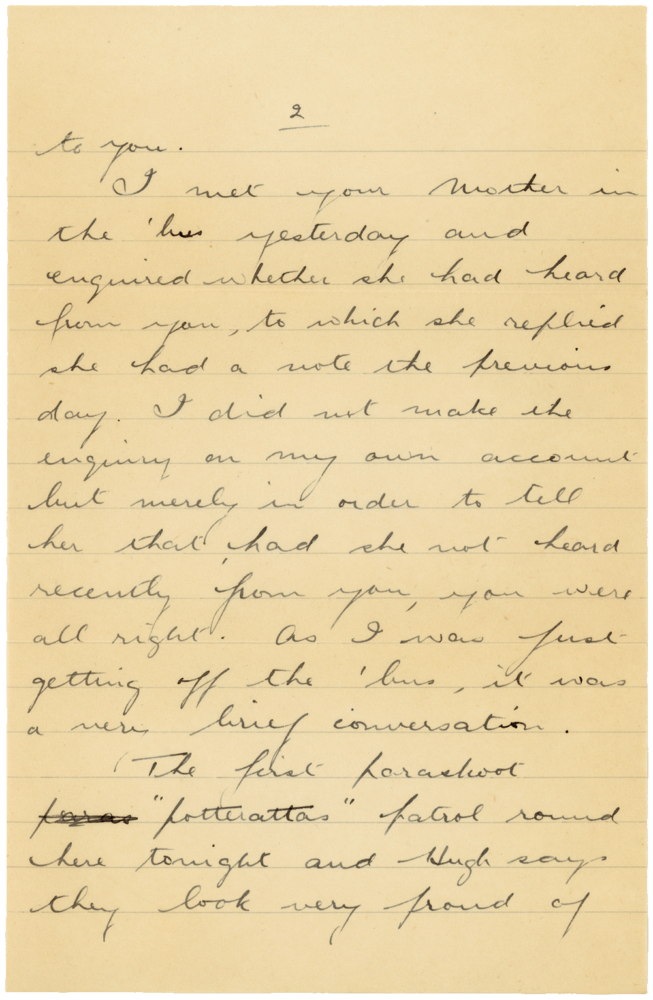 2
to you.
I met your Mother in
the 'bus yesterday and
enquired whether she had heard
from you, to which she replied
she had a note the previous
day. I did not make the
enquiry on my own account
but merely in order to tell
her that, had she not heard
recently from you, you were
all right. As I was just
getting off the 'bus, it was
a very brief conversation.
The first parashoot
paras "potterattas" patrol round
here tonight and Hugh says
they look very proud of